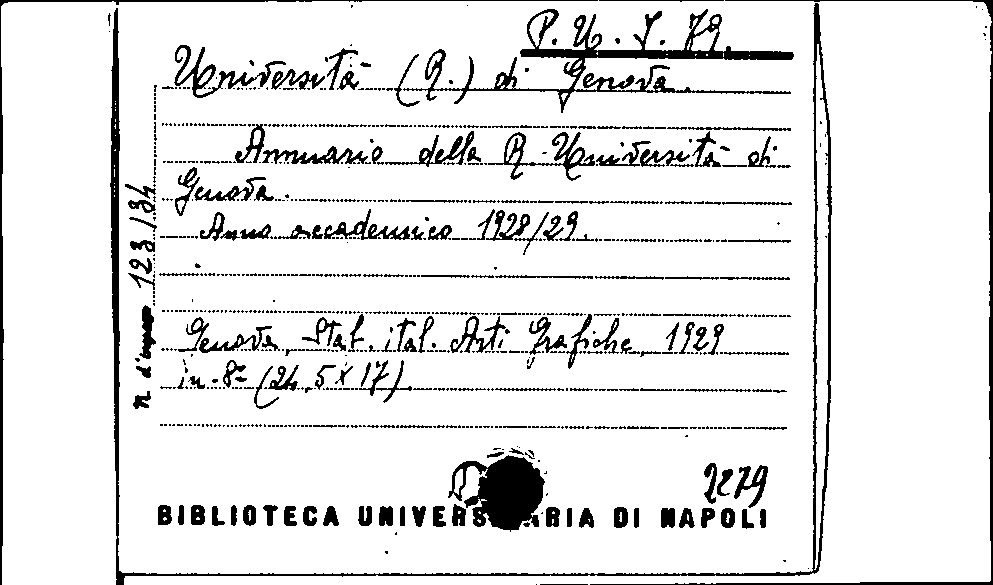 P. U. I. 79.
Università (R.) di Genova.
Annuario della R. Università di
Genova.
Anno accademico 1928/29.
n. d'ingresso 123134
Genova, Stab. ital. Arti Grafiche, 1929
in-8º (24,5 X 17).
2279
BIBLIOTECA UNIVERSITARIA DI NAPOLI